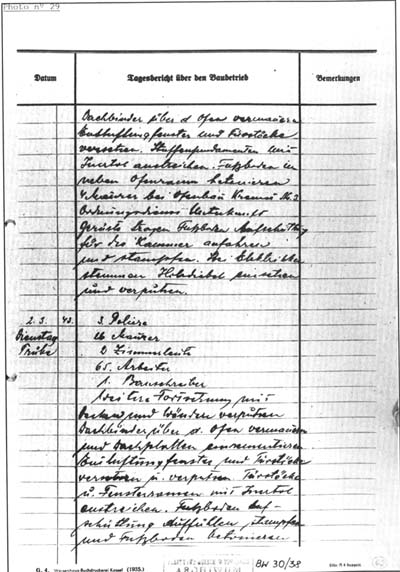 Photo nº 29
Datum Tagesbericht über den Baubetrieb Bemerkungen
Dachbinder über d. Ofen vermauern
Entlüftungsfenster und Türstöcke
versetzen. mit
Inertol austreichen. Fußboden in
neben Ofenraum betonieren
4 Maurer bei Ofenbau Krema
Unterkunft
Gerüste tragen Fußboden Aufschüttung
für die Kammer anfahren
und stampfen. Die Elektriker
stemmen einsetzen
und verputzen.
2.3. 43. 3 Poliere
Dienstag 26 Maurer
Trübe 2 Zimmerleute
65. Arbeiter
1. Bauschreiber
Weitere Fortsetzung mit
und Wände verputzen
Dachbinder über d. Ofen vermauern
und Dachplatten
Entlüftungsfenster und Türstöcke
versetzen u. verputzen Türstöcke
u. Fensterramen mit Inertol
austreichen. Fußboden Auf-
schüttung Auffüllen, stampfen
und Fußboden betonieren
BW 30/38